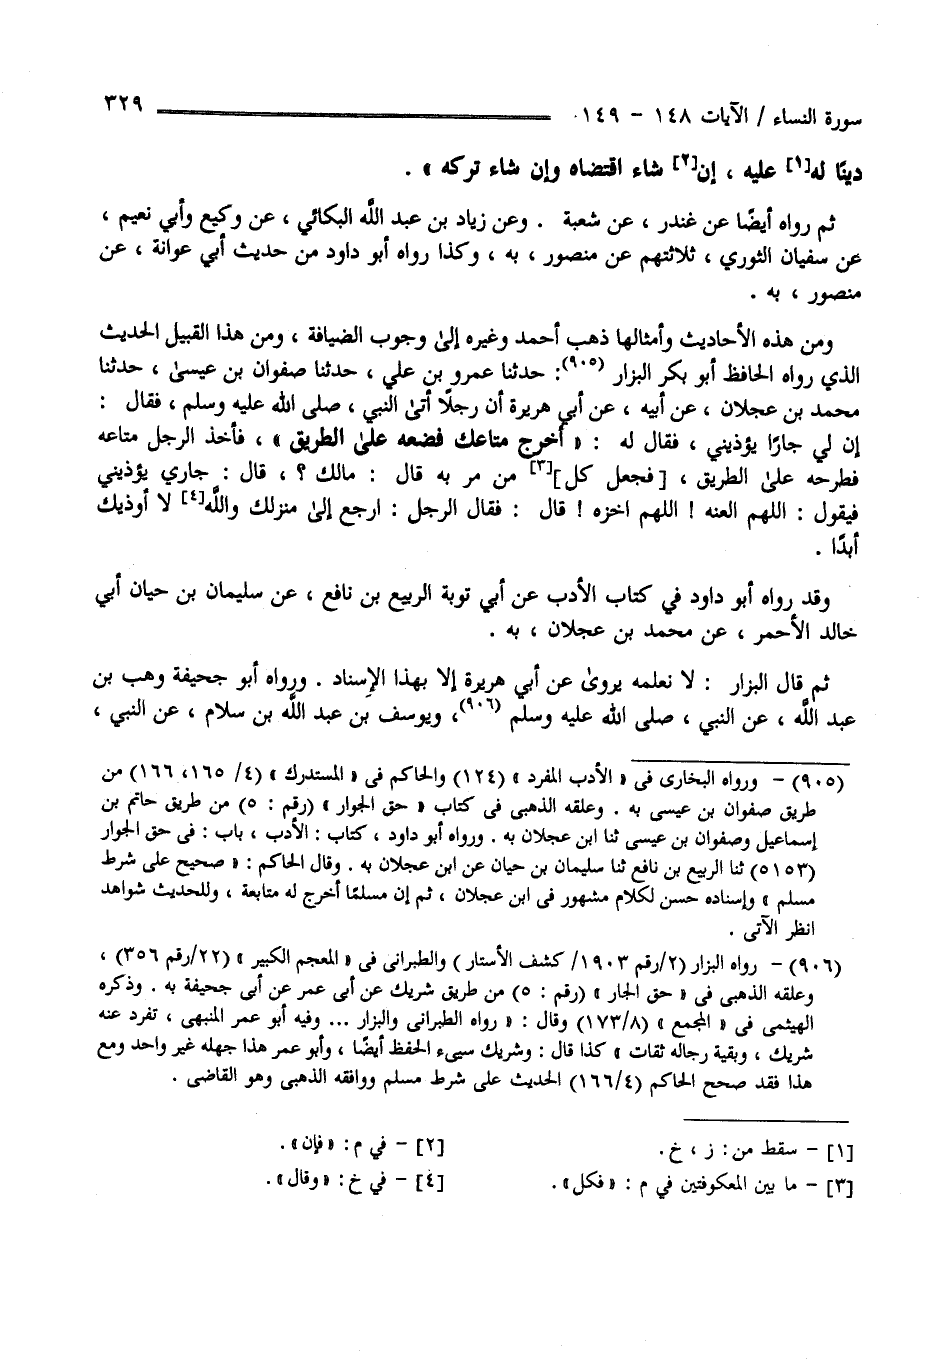 سورة النساء / الآيات ١٤٨ - ١٤٩ ٣٢٩
دينًا له[١] عليه ، إن[٢] شاء اقتضاه وإن شاء تركه » .
ثم رواه أيضًا عن غندر ، عن شعبة . وعن زياد بن عبد اللَّه البكائي ، عن وكيع وأبي نعيم ،
عن سفيان الثوري ، ثلاثتهم عن منصور ، به ، وكذا رواه أبو داود من حديث أبي عوانة ، عن
منصور ، به .
ومن هذه الأحاديث وأمثالها ذهب أحمد وغيره إلىٰ وجوب الضيافة ، ومن هذا القبيل الحديث
الذي رواه الحافظ أبو بكر البزار (٩٠٥): حدثنا عمرو بن علي ، حدثنا صفوان بن عيسىٰ ، حدثنا
محمد بن عجلان ، عن أبيه ، عن أبي هريرة أن رجلًا أتىٰ النبي ، صلى الله عليه وسلم ، فقال :
إن لي جارًا يؤذيني ، فقال له : « أخرج متاعك فضعه علىٰ الطريق » ، فأخذ الرجل متاعه
فطرحه علىٰ الطريق ، [ فجعل كل ][٣] من مر به قال : مالك ؟ ، قال : جاري يؤذيني
فيقول : اللهم العنه ! اللهم اخزه ! قال : فقال الرجل : ارجع إلىٰ منزلك واللَّه[٤] لا أوذيك
أبدًا .
وقد رواه أبو داود في كتاب الأدب عن أبي توبة الربيع بن نافع ، عن سليمان بن حيان أبي
خالد الأحمر ، عن محمد بن عجلان ، به .
ثم قال البزار : لا نعلمه يروىٰ عن أبي هريرة إلا بهذا الإسناد . ورواه أبو جحيفة وهب بن
عبد اللَّه ، عن النبي ، صلى الله عليه وسلم (٩٠٦)، ويوسف بن عبد اللَّه بن سلام ، عن النبي ،
(٩٠٥) - ورواه البخارى فى « الأدب المفرد » (١٢٤) والحاكم فى « المستدرك » (٤/ ١٦٥، ١٦٦) من
طريق صفوان بن عيسى به . وعلقه الذهبى فى كتاب « حق الجوار » (رقم : ٥) من طريق حاتم بن
إسماعيل وصفوان بن عيسى ثنا ابن عجلان به . ورواه أبو داود ، كتاب : الأدب ، باب : فى حق الجوار
(٥١٥٣) ثنا الربيع بن نافع ثنا سليمان بن حيان عن ابن عجلان به . وقال الحاكم : « صحيح على شرط
مسلم » وإسناده حسن لكلام مشهور فى ابن عجلان ، ثم إن مسلمًا أخرج له متابعة ، وللحديث شواهد
انظر الآتى .
(٩٠٦) - رواه البزار (٢/رقم ١٩٠٣/ كشف الأستار ) والطبرانى فى « المعجم الكبير » (٢٢/رقم ٣٥٦) ،
وعلقه الذهبى فى « حق الجار » (رقم : ٥) من طريق شريك عن أبى عمر عن أبى جحيفة به . وذكره
الهيثمى فى « المجمع » (١٧٣/٨) وقال : « رواه الطبرانى والبزار ... وفيه أبو عمر المنبهى ، تفرد عنه
شريك ، وبقية رجاله ثقات » كذا قال : وشريك سيىء الحفظ أيضًا ، وأبو عمر هذا جهله غير واحد ومع
هذا فقد صحح الحاكم (١٦٦/٤) الحديث على شرط مسلم ووافقه الذهبى وهو القاضى .
[١] - سقط من: ز ، خ. [٢] - في م: «فإن».
[٣] - ما بين المعكوفتين في م : «فكل». [٤] - في خ: «وقال».